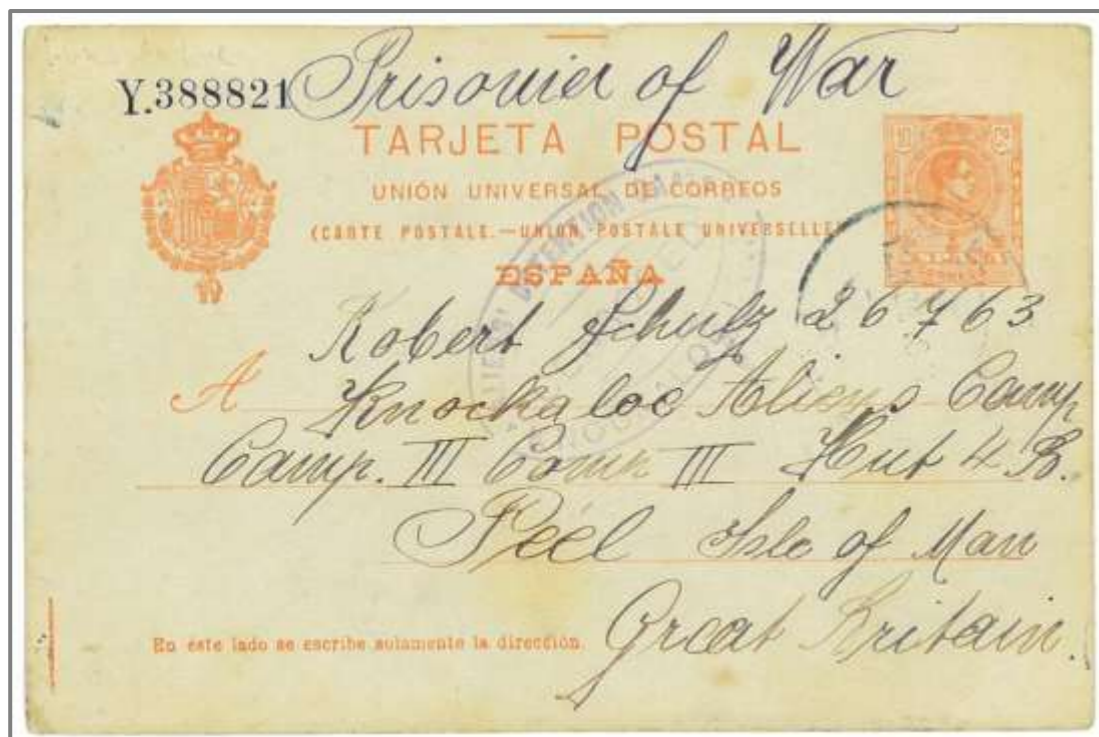 Prisonier of War
Y.388821
TARJETA POSTAL
10 Cs
UNIÓN UNIVERSAL DE CORREOS
(CARTE POSTALE.—UNION POSTALE UNIVERSELLE)
ESPAÑA
Robert Schulz 26763
A Knockaloe Aliens Camp
Camp. III Comp III Hut 4 B.
Péel Isle of Man
Great Britain.
En este lado se escribe solamente la dirección.
DETENTION